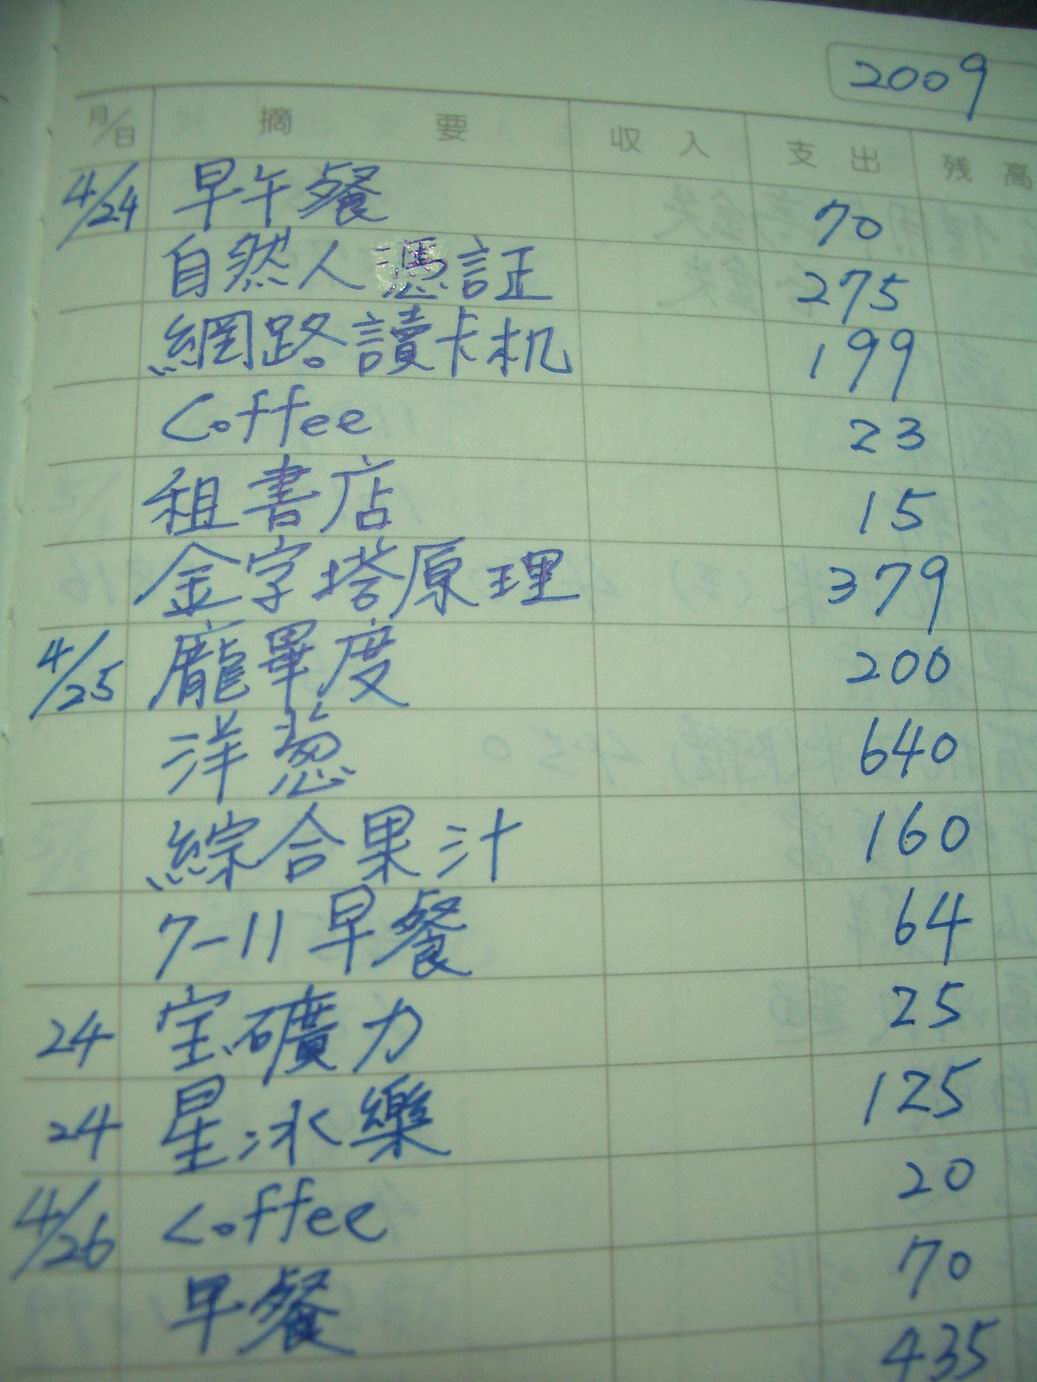 2009
月/日 摘要 収入 支出 残高
4/24 早午餐 70
自然人憑証 275
網路讀卡机 199
Coffee 23
租書店 15
金字塔原理 379
4/25 龐畢度 200
洋葱 640
綜合果汁 160
7-11早餐 64
24 宝礦力 25
24 星冰樂 125
4/26 Coffee 20
早餐 70
435